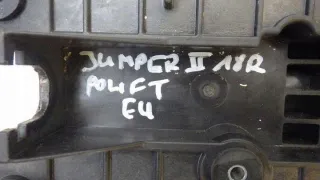 JUMPER III 18R
POLIFT
EU